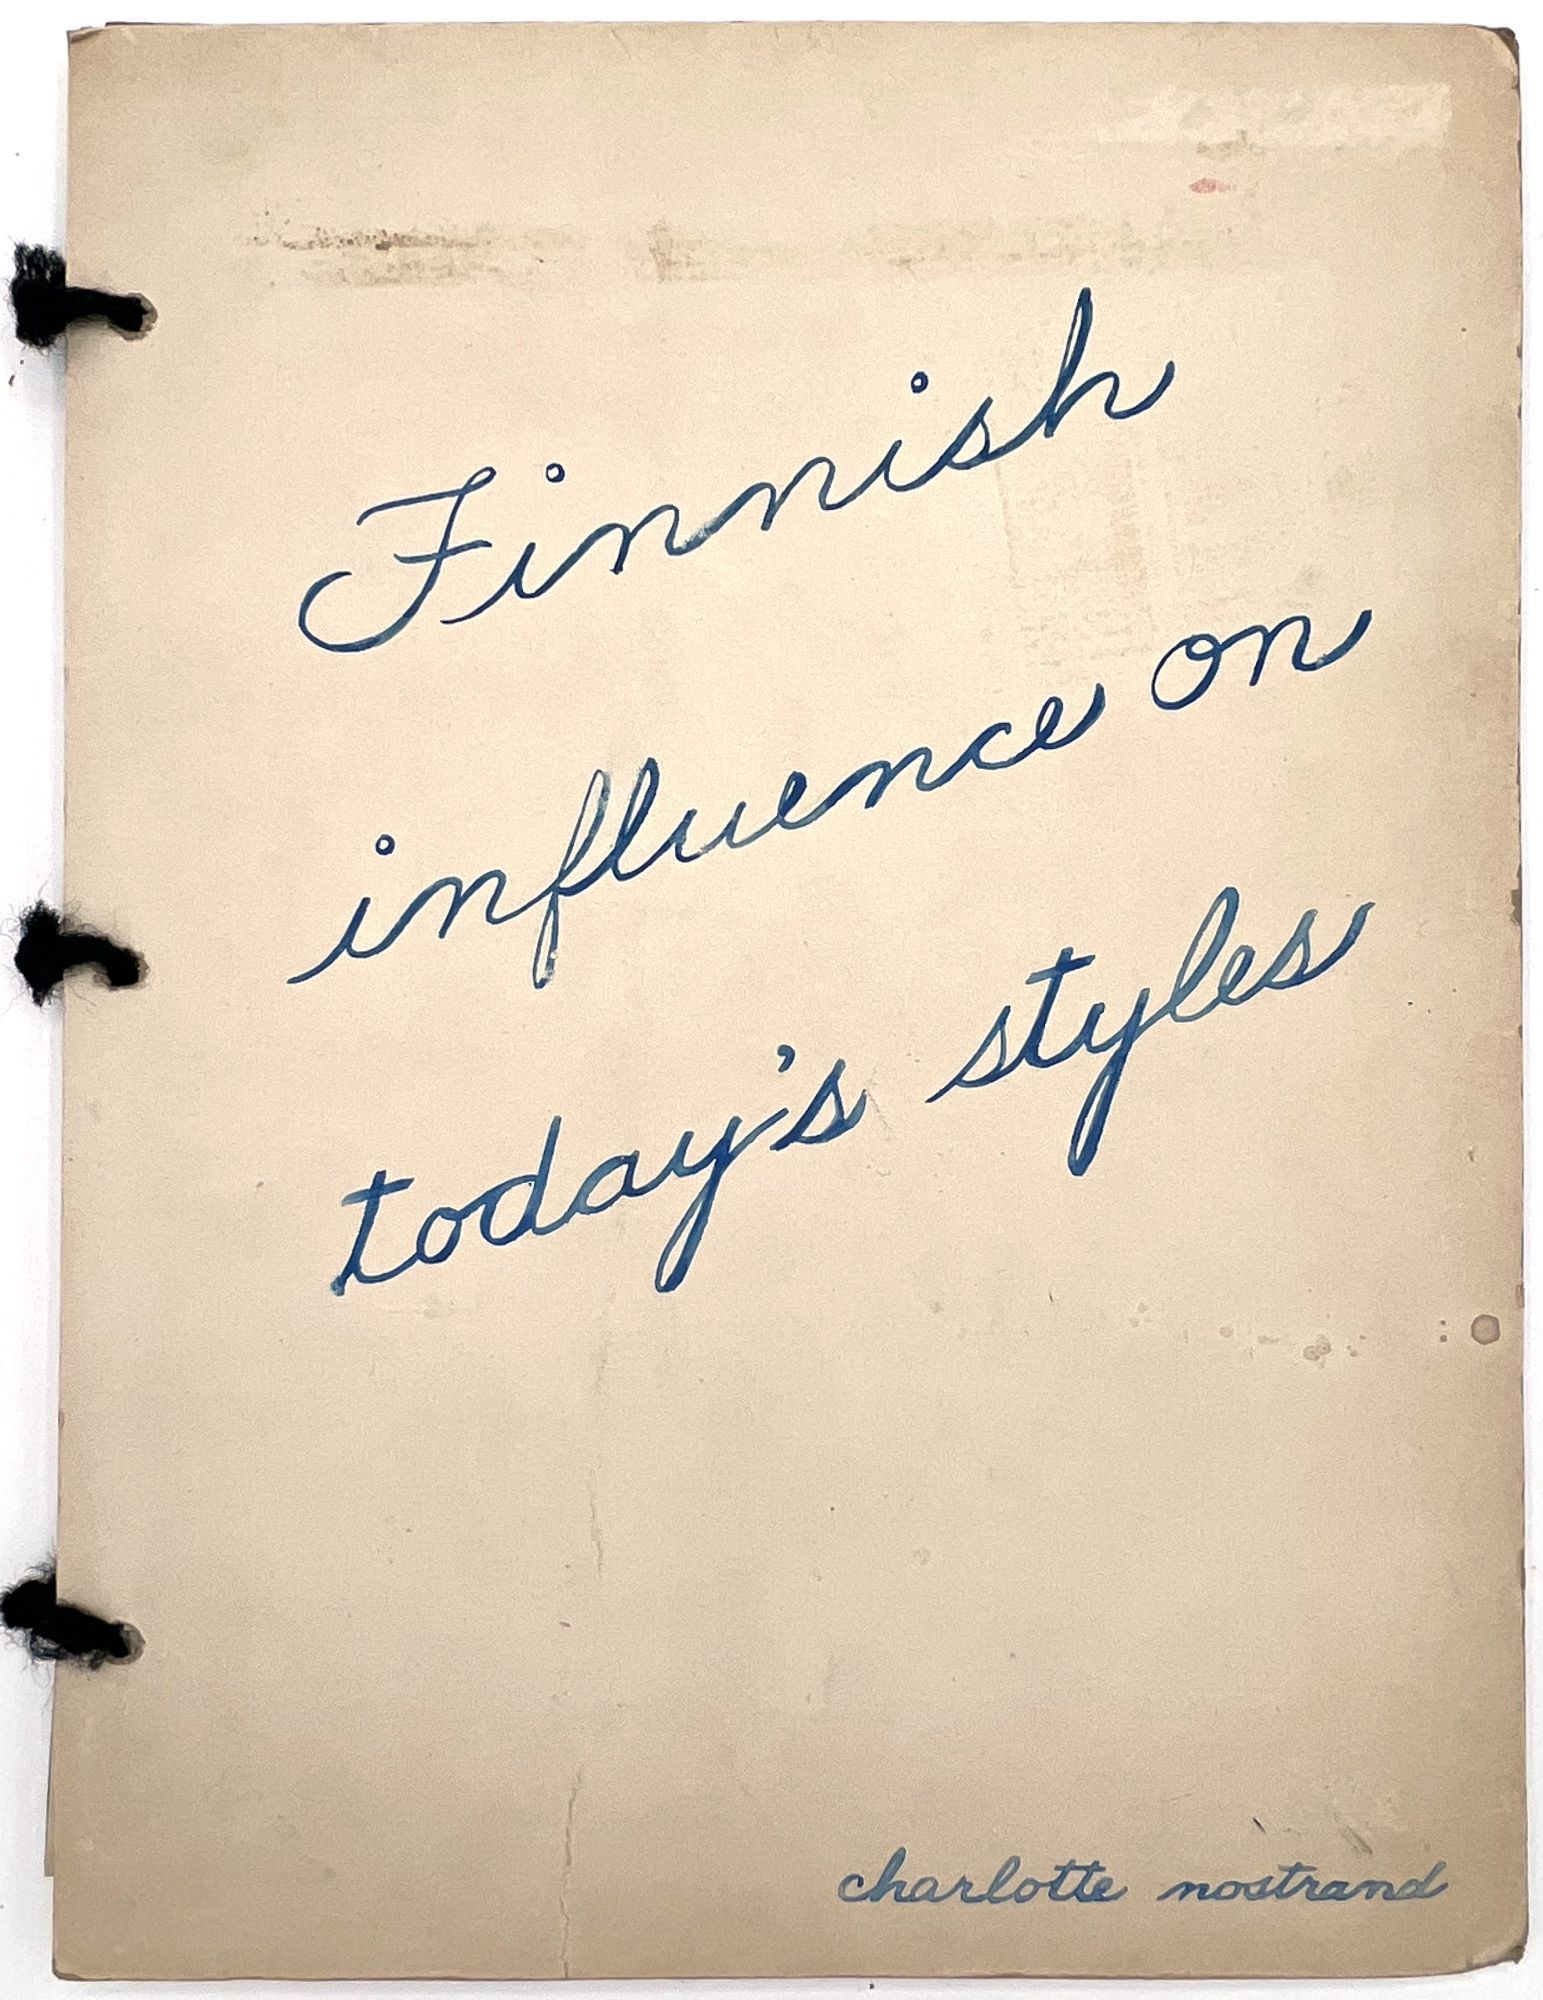 Finnish
influence on
today's styles
charlotte nostrand